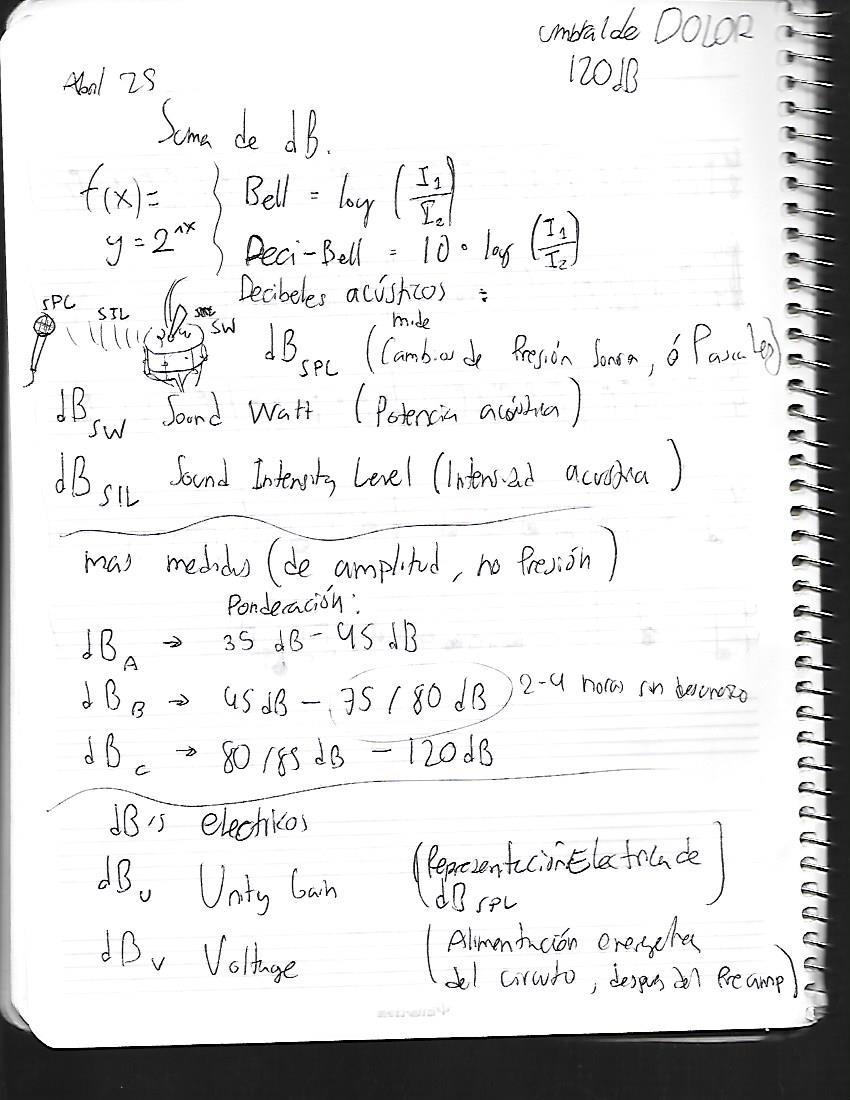 umbral de DOLOR
120 dB
Abril 25
Suma de dB.
f(x)=
y = 2^nx
Bell = log (I1/I2)
Deci-Bell = 10 • log (I1/I2)
Decibeles acústicos :
SPL
SIL
SW
mide
dB SPL (Cambios de Presión Sonora, ó Pascales)
dB SW Sound Watt (Potencia acústica)
dB SIL Sound Intensity Level (Intensidad acustica)
mas medidas (de amplitud, no Presión)
Ponderación:
dB A → 35 dB - 45 dB
dB B → 45 dB - 75 / 80 dB 2-4 horas sin descanso
dB C → 80 / 85 dB - 120 dB
dB's electricos
dB U Unity Gain (Reprezentación Electrica de
dB SPL)
dB V Voltage (Alimentación energetica
del circuito, despues del Preamp)